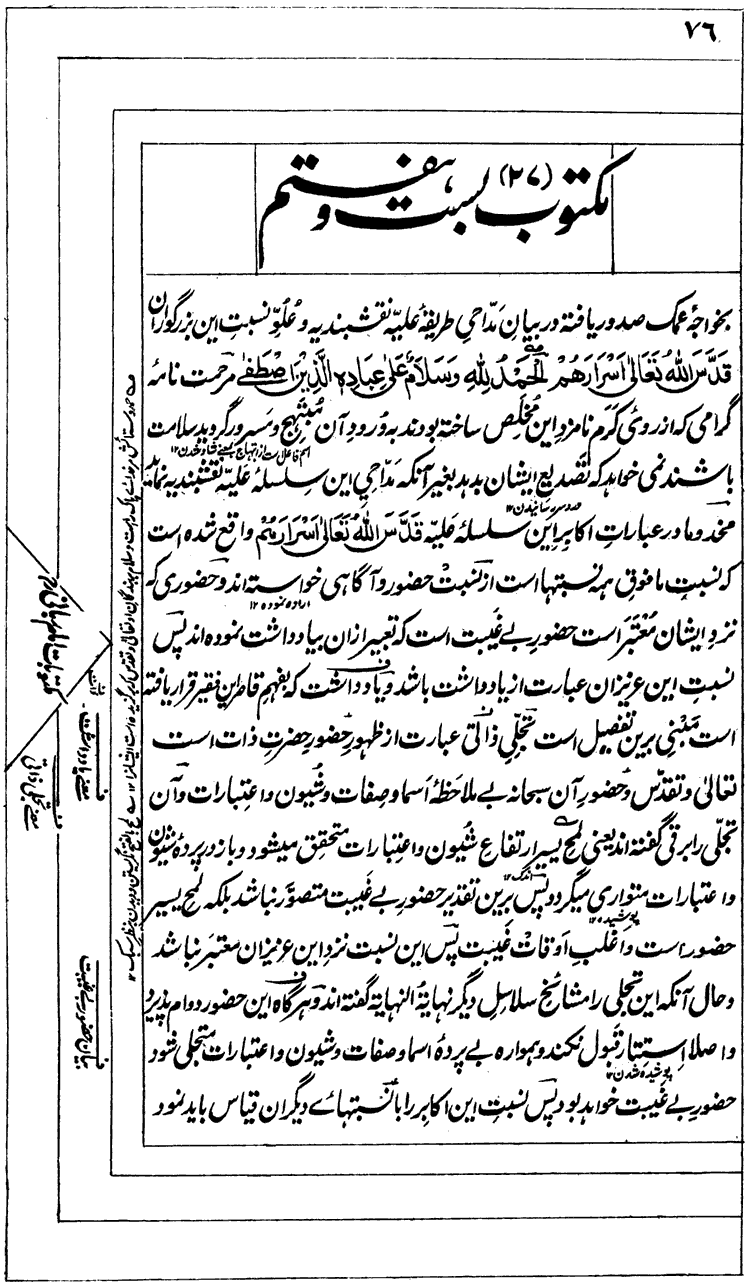 ۷٦
مکتوب (۲۷) بست و هفتم
بخواجهٔ عمک صدور یافته در بیان مدّاحیِ طریقهٔ علیّه نقشبندیه و عُلُوِّ نسبتِ این بزرگواران
قَدَّسَ اللهُ تَعَالیٰ اَسْرَارَهُمْ اَلْحَمْدُ لِلّٰهِ وَسَلَامٌ عَلیٰ عِبَادِهِ الَّذِیْنَ اصْطَفٰے مرحمت نامه
گرامی که از روی کَرَم نامزدِ این مُخلِص ساخته بودند به وُرودِ آن مُبتَهِج و مسرور گردید سلامت
باشند نمی خواهد که تصدیع ایشان بدهد بغیر آنکه مَدّاحیِ این سلسلهٔ علیّه نقشبندیه نماید
مخدوما در عباراتِ اکابرِ این سلسلهٔ عَلِیّه قَدَّسَ اللهُ تَعَالیٰ اَسْرَارَهُمْ واقع شده است
که نسبتِ ما فوق همه نسبتها است از نسبت حضور و آگاهی خواسته اند و حضوری که
اراده نموده ۱۲
نزدِ ایشان مُعتبَر است حضورِ بے غَیبت است که تعبیر ازان بیادداشت نموده اند پس
نسبتِ این عزیزان عبارت از یادداشت باشد و یادداشت که بفهمِ قاصرِ این فقیر قرار یافته
است مَبْنی برین تفصیل است تجلّیِ ذاتی عبارت از ظهورِ حضورِ حضرتِ ذات است
تعالیٰ و تقدّس و حضورِ آن سبحانه بے ملاحظهٔ اَسما و صفات و شُیون و اعتبارات و آن
تجلّی را برقی گفته اند یعنی لمحِ یسیر ارتفاعِ شُیون و اعتبارات متحقق میشود و باز در پردهٔ شیون
اندک ۱۲
و اعتبارات متواری میگردد پس برین تقدیر حضورِ بے غَیبت متصوّر نباشد بلکه لمحِ یسیر
پوشیده ۱۲
حضور است و اغلب اوقات غَیبت پس این نسبت نزدِ این عزیزان معتبر نباشد
و حال آنکه این تجلی را مشائخِ سلاسلِ دیگر نهایةُ النهایة گفته اند و هرگاه این حضور دوام پذیرد
و اصلا اِستتار قبول نکند و همواره بے پردهٔ اسما و صفات و شیون و اعتبارات متجلی شود
پوشیده شدن ۱۲
حضورِ بے غَیبت خواهد بود پس نسبتِ این اکابر را با نسبتهاے دیگران قیاس باید نمود
مکتوبات امام ربانی رح
ف
معنے یادداشت
ف
معنے تجلی ذاتی
ف
بیان حضور بے غیبت